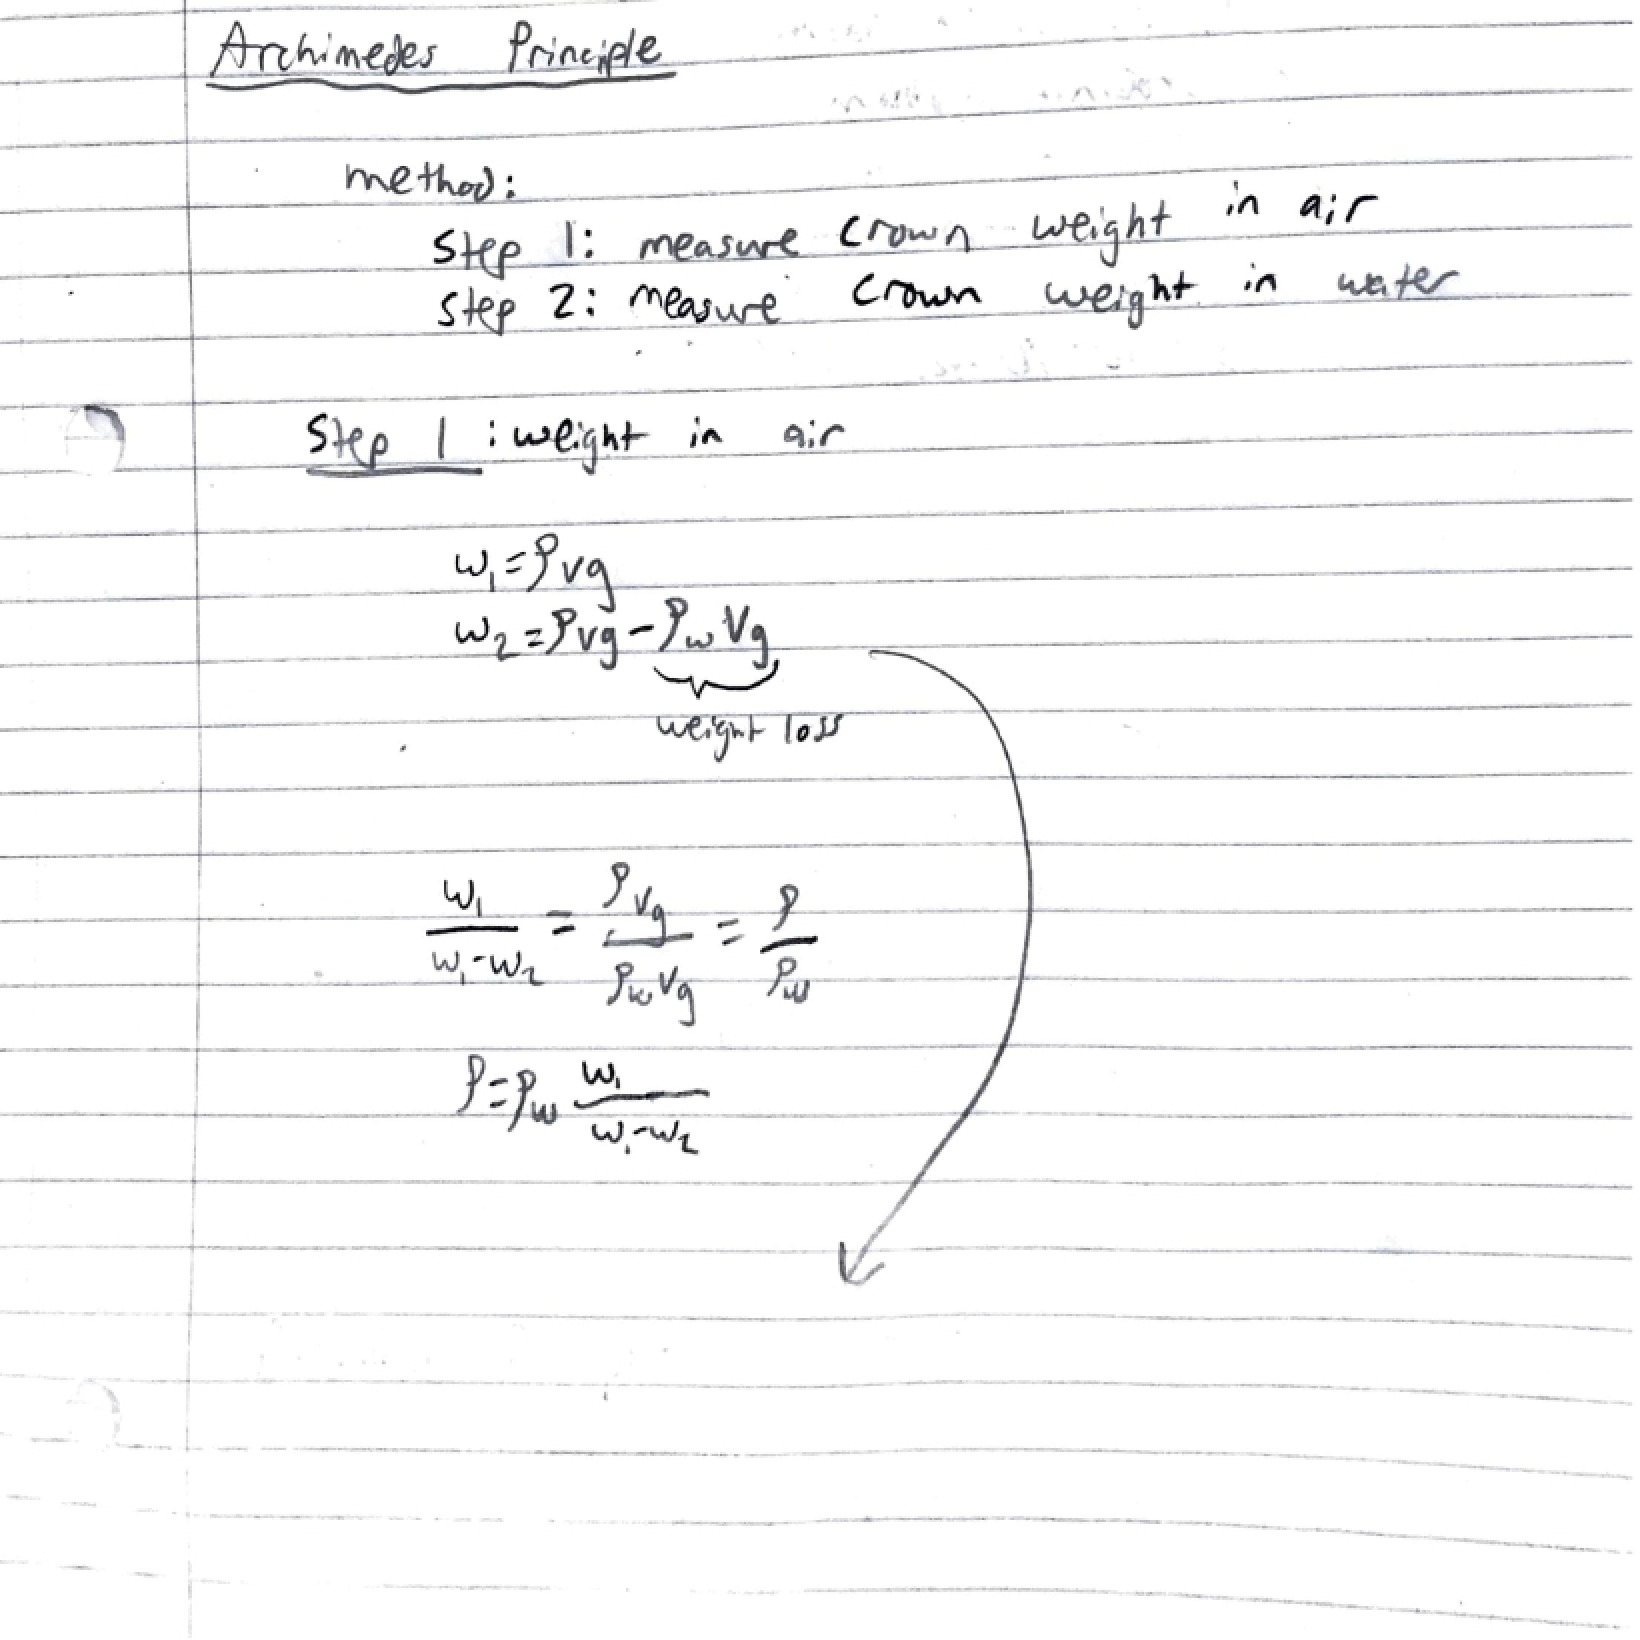 Archimedes Principle
method:
Step 1: measure crown weight in air
Step 2: measure crown weight in water
Step 1: weight in air
w₁=ρvg
w₂=ρvg-ρ_w Vg
weight loss
w₁/(w₁-w₂) = ρVg/(ρ_w Vg) = ρ/ρ_w
ρ=ρ_w w₁/(w₁-w₂)